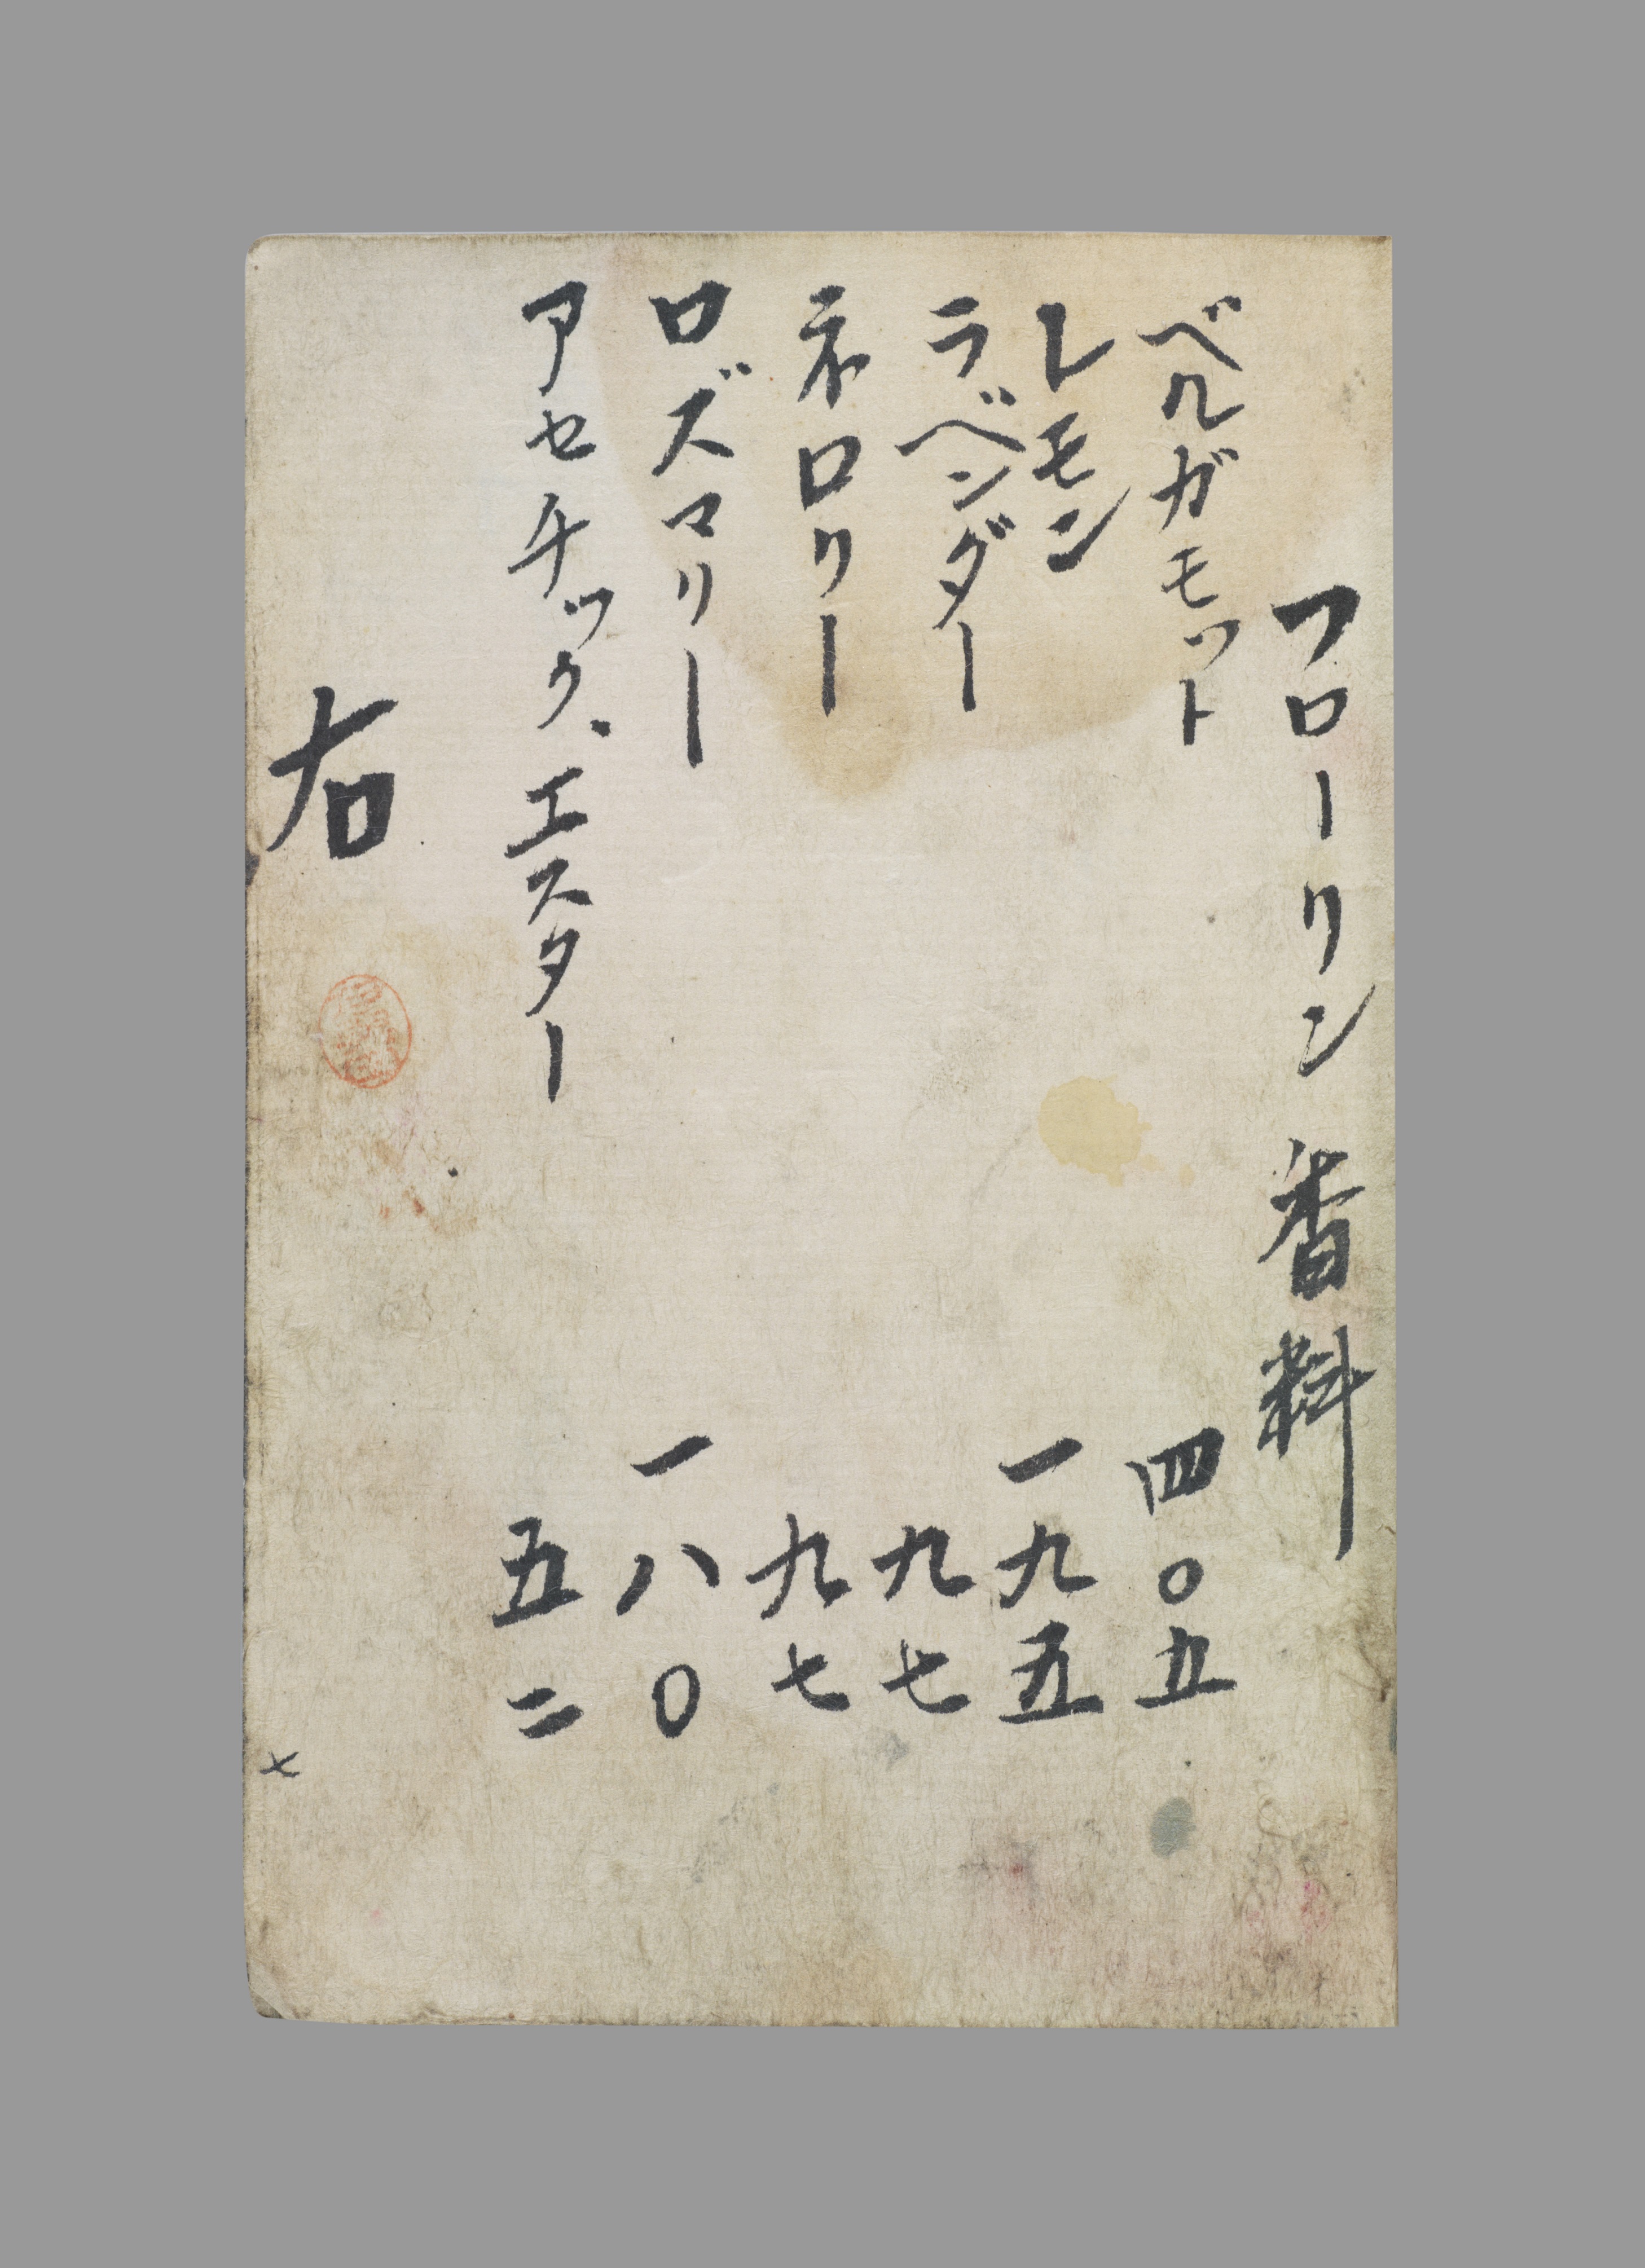 フローリン香料
ベルガモット 四〇五
レモン 一九五
ラベンダー 九七
ネロリー 九七
ロズマリー 一八〇
アセチック、エスター 五二
右
七